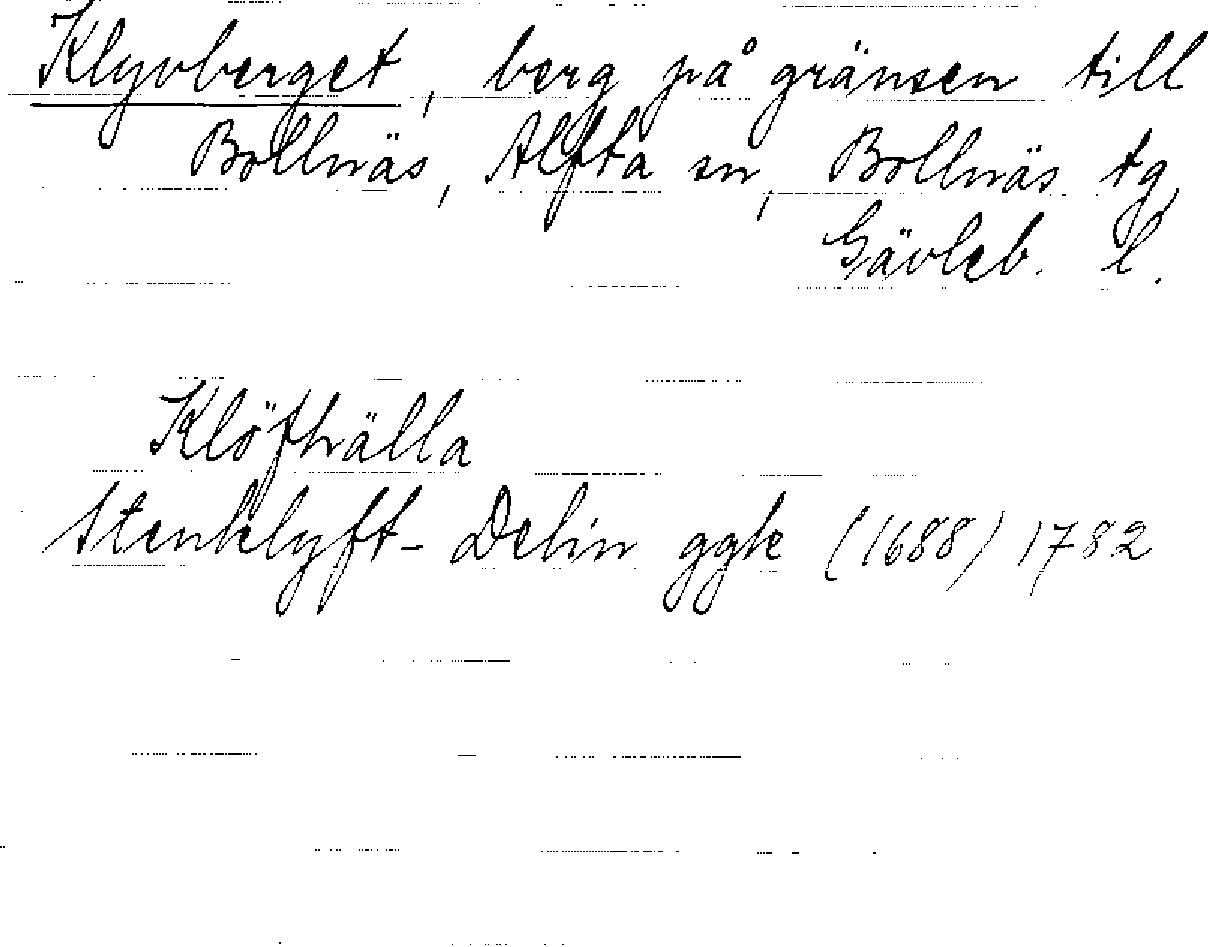 Klyvberget, berg på gränsen till
Bollnäs, Alfta sn, Bollnäs tg,
Gävleb. l.
Klöfhälla
Stenklyft- Delin ggk (1688) 1782